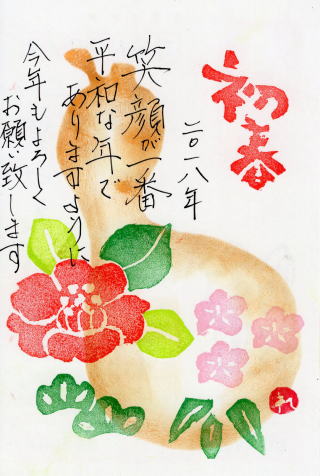 初春
二〇一八年
笑顔が一番
平和な年で
ありますように
今年もよろしく
お願い致します